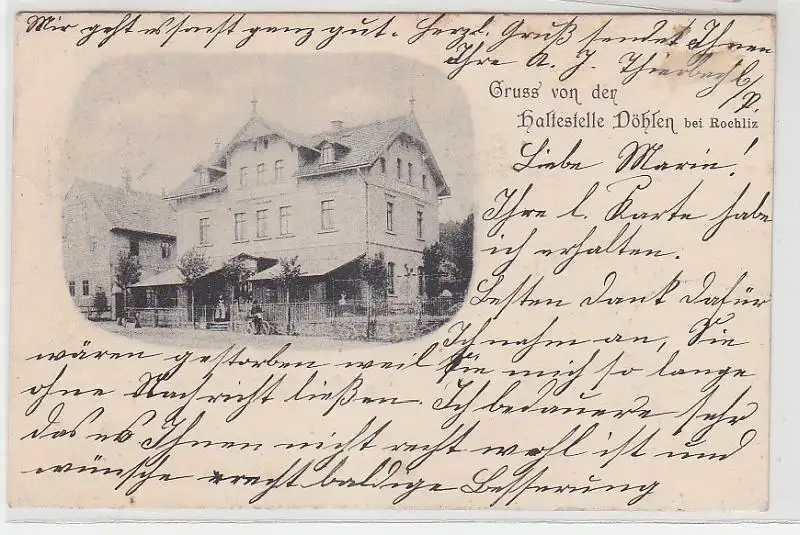 Gruss von der
Haltestelle Döhlen bei Rochliz
Liebe Marie!
Ihre l. Karte habe
ich erhalten.
Besten Dank dafür
Ich nahm an, Sie
wären gestorben weil Sie mich so lange
ohne Nachricht ließen. Ich bedauere sehr
das es Ihnen nicht recht wohl ist und
wünsche recht baldige Besserung
Mir geht es sonst ganz gut. Herzl. Gruß sendet Ihnen
Ihre A. J. Thierbach